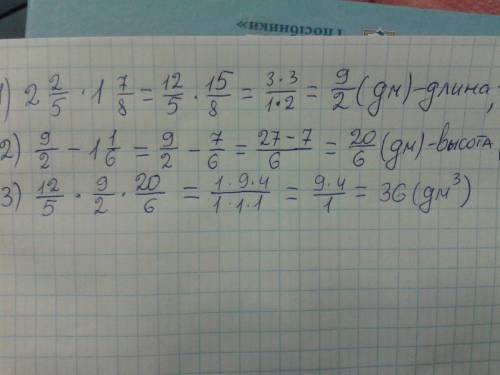 І посібники»
1) 2 2/5 · 1 7/8 = 12/5 · 15/8 = 3·3/1·2 = 9/2 (дм) - длина,
2) 9/2 - 1 1/6 = 9/2 - 7/6 = 27-7/6 = 20/6 (дм) - высота,
3) 12/5 · 9/2 · 20/6 = 1·9·4/1·1·1 = 9·4/1 = 36 (дм³)